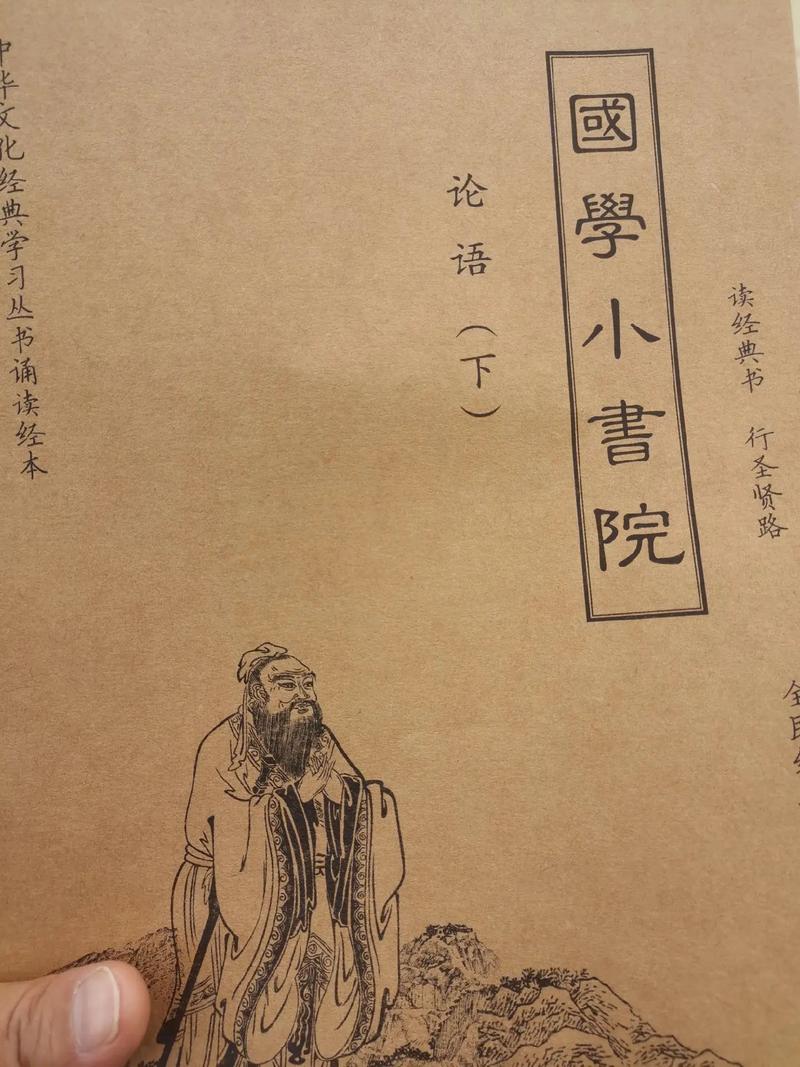 國學小書院
论语（下）
读经典书 行圣贤路
中华文化经典学习丛书诵读经本
全民